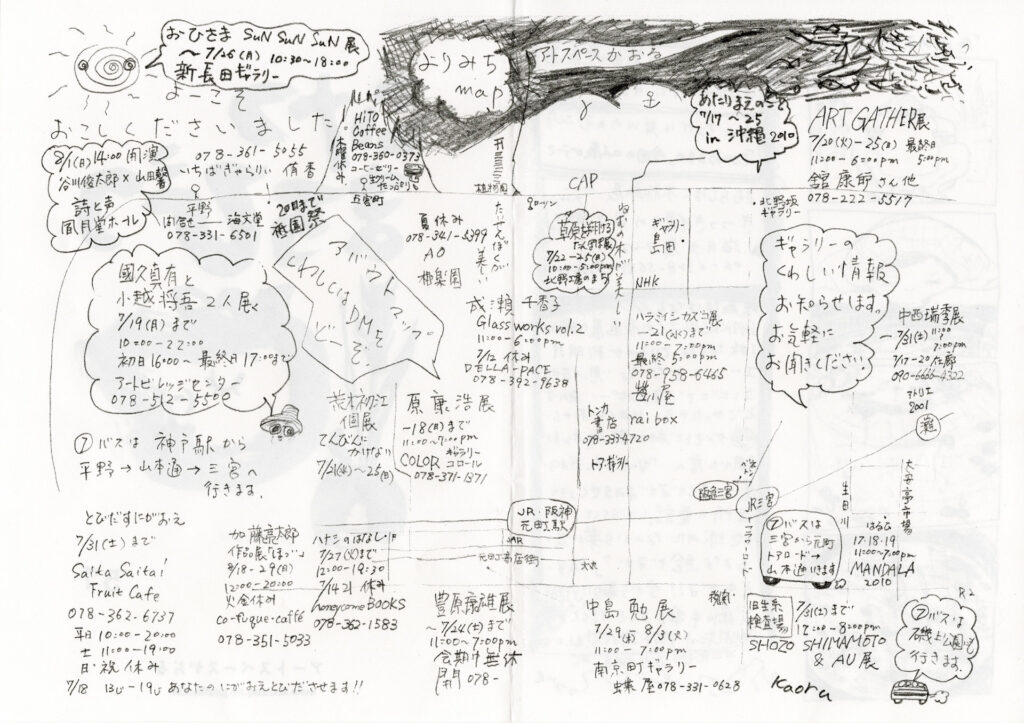 おひさま SuN SuN SuN 展
〜7/26(月) 10:30〜18:00
新長田ギャラリー
よーこそ
おこしくださいました
よりみち
map
アートスペースかおる
あたりまえのこと
7/17〜25
in 沖縄 2010
ART GATHER展
7/20(火)-25(日) 最終日
11:00-6:00pm 5:00pm
舘 康師 さん他
078-222-5517
北野坂
ギャラリー
8/1(日)14:00開演
谷川俊太郎×山田馨
詩と声
風月堂ホール
078-361-5055
いちばぎゃらりぃ 侑香
HiTO
Coffee
Beans
078-360-0373
コーヒーゼリー
生クリーム
木曜休み
五宮町
平野
海文堂
078-331-6501
20日まで
祇園祭
植物園
CAP
夏休み
078-341-5399
AO
相楽園
草原を翔ける
7/22-25(日)
10:00-5:00pm
北野工房のまち
ねむの木が美しい
ギャラリー
島田
NHK
ギャラリーの
くわしい情報
お知らせします。
お気軽に
お聞きください。
國久真有と
小越将吾 2人展く
7/19(月)まで
10:00-22:00
初日16:00〜 最終日17:00まで
アートビレッジセンター
078-512-5500
アバウトマップ
くわしくはDMを
どーぞ
成瀬 千香子
Glass works vol.2
11:00-6:00pm
7/12 休み
DELLA-PACE
078-392-9638
-21(水)まで
11:00-7:00pm
最終 5:00pm
078-958-6465
中西瑞季展
7/31(土) 11:00
7:00pm
7/17-20在廊
090-6666-4322
アトリエ
2001
灘
⑦バスは 神戸駅から
平野→山本通→三宮へ
行きます。
荒木初江
個展
てんびんに
かけない
7/21(水)〜25(日)
原 康浩 展
-18(日)まで
11:00〜7:00pm
COLOR ギャラリー
コロール
078-371-1371
トンカ
書店
078-333-4720
rai box
トアギャラリー
JR・阪神
元町駅
阪急三宮
JR三宮
フラワーロード
生田川
大安亭市場
元町商店街
大丸
⑦バスは
三宮から元町
トアロード→
山本通いきます
17・18・19
11:00〜7:00pm
MANDALA
2010
とびだすにがおえ
7/31(土)まで
Saita Saita!
Fruit Cafe
078-362-6737
平日 10:00-20:00
土 11:00-19:00
日・祝 休み
7/18 13〜19 あなたのにがおえとびださせます!!
加藤亮太郎
8/18-29(日)
12:00-20:00
火金休み
co-fuque-caffé
078-351-5033
7/27(火)まで
12:00-19:30
7/14 21 休み
honeycomeBOOKS
078-362-1583
豊原康雄展
〜7/24(土)まで
11:00〜7:00pm
会期中無休
078-
中島 勉 展
7/29(木) 8/3(火)
11:00-7:00pm
南京町ギャラリー
蝶屋 078-331-0628
旧生糸
検査場
7/31(土)まで
12:00-8:00pm
SHOZO SHIMAMOTO
& AU展
Kaoru
R2
⑦バスは
磯上公園も
行きます。